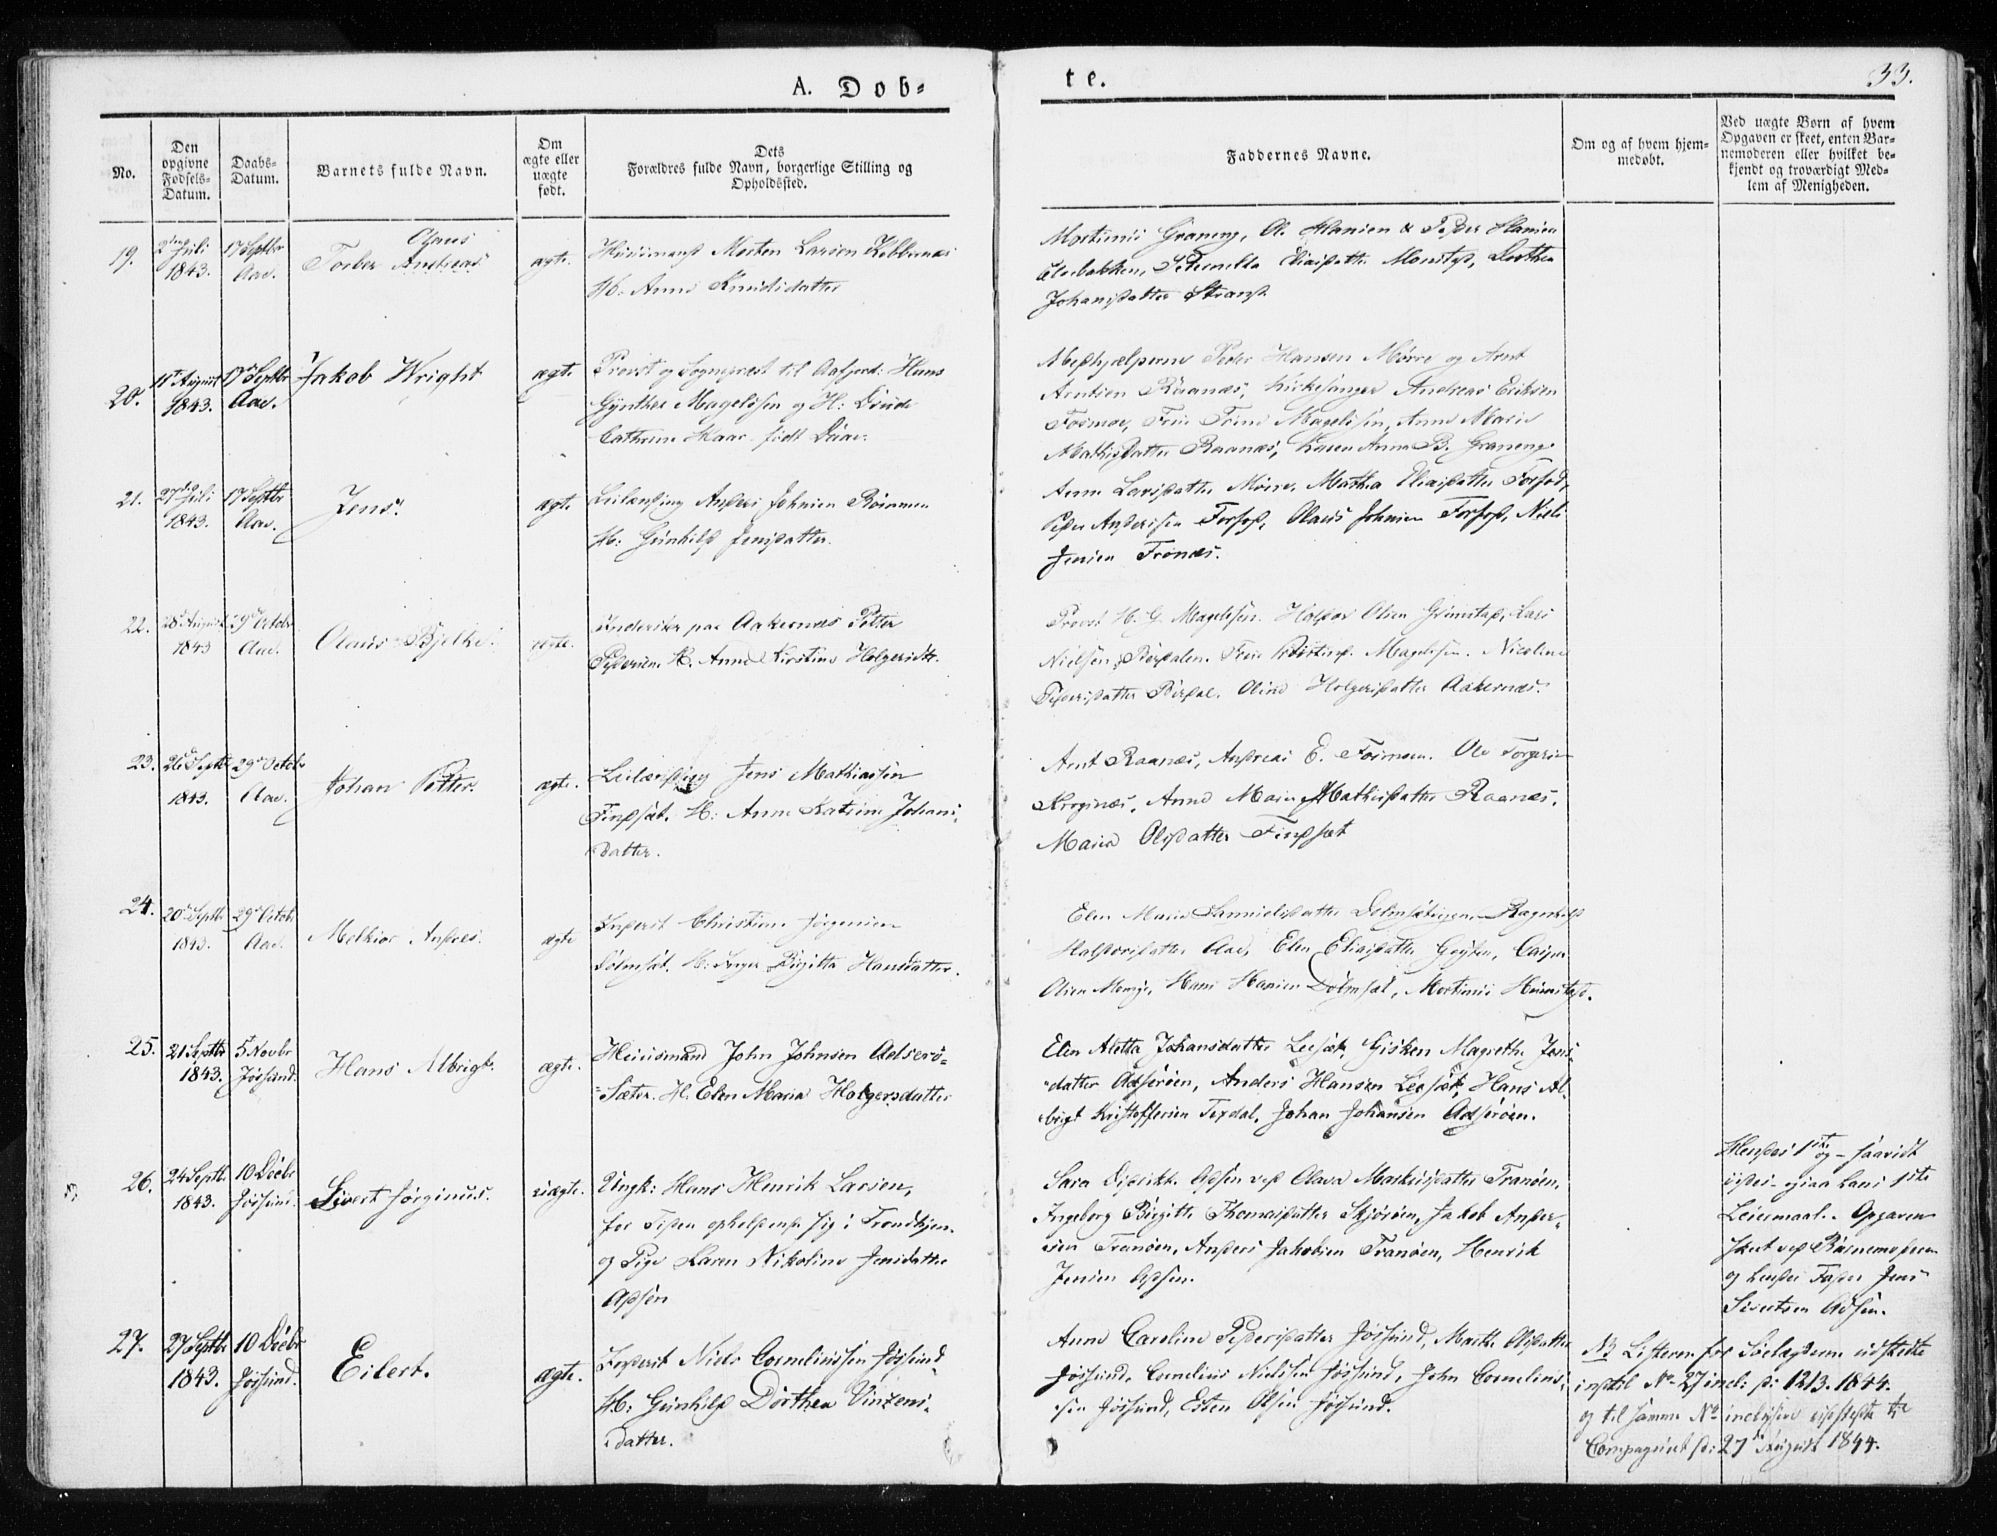 A. Døb-
te.
33.
No.
Den
opgivne
Fødsels-
Datum.
Daabs-
Datum.
Barnets fulde Navn.
Om
ægte eller
uægte
født.
Dets
Forældres fulde Navn, borgerlige Stilling og
Opholdssted.
Faddernes Navne.
Om og af hvem hjem-
medøbt.
Ved uægte Børn af hvem
Opgaven er skeet, enten Bar-
nemoderen eller hvilket be-
kjendt og troværdigt Med-
lem af Menigheden.
19.
Juli
1843.
17 Septbr
Aae.
Andreas
ægte.
Huusmand Morten Larsen
H: Anne Knudsdatter
Graneng, O. Hansen & Peder Hansen
Peternilla Eliasdatter Dorthea
Johansdatter Strand
20.
11te August
1843.
17 Septbr
Aae.
Jakob Wright
ægte
Provst og Sognepræst til Aafjord: Hans
Gynther Magelssen og H:
Cathrine født
Medhjælperne Peder Hansen Mørre og Arnt
Arntsen Raanæs, Kirkesanger Andreas Eriksen
Fosmoe, Frue Trine Magelssen, Anne Marie
Mathisdatter Raanæs, Karen Anna B. Graneng
21.
27 Juli
1843.
17 Septbr
Aae.
Jens.
ægte
Leilænding Anders Johnsen
H: Gunhild Jensdatter.
Anne Larsdatter Mørre, Mathea Eliasdatter Forfod,
Peder Andersen Forfod, Olaus Johnsen Forfod, Niels
Jensen Trønes.
22.
28 August
1843
29 Octobr
Aae.
Olaus Bjelke.
ægte.
paa Aakernæs Petter
Pedersen H. Anne Kirstine Holgersdtr.
Provst H. G. Magelssen. Haldor Olsen Grimstad, Lars
Nielsen Frue Magelssen. Nicoline
Pedersdatter Oline Holgersdatter Aakernæs.
23.
26 Septbr
1843.
29 Octobr
Aae.
Johan Petter.
ægte.
Leilænding Jens Mathiassen
Findsæt. H: Anne Katrine Johans-
datter.
Arnt Raanæs, Andreas E. Fosmoen. Ole Torgersen
Krognæs. Anne Marie Mathisdatter Raanæs.
Maria Olsdatter Findsæt
24.
20 Septbr
1843.
29 Octobr
Aae.
Melkior Andreas.
ægte
Inderst Christian Jørgensen
Dølmsæt. H: Inger Birgitta Hansdatter.
Elen Maria Danielsdatter Dolmsætengen, Ragnhild
Haldorsdatter Aae, Elen Eliasdatter
Olsen Hans Hansen Dølmsæt,
25.
21 Septbr
1843.
5 Novbr
Jøssund.
Hans Albrigt.
ægte.
Huusmand John Johnsen Adserø-
Sæter. H. Elen Maria Holgersdatter
Elen Aletta Johansdatter Leesæt, Gisken Magrethe Jens-
datter Adserøen, Anders Hansen Leesæt, Hans Al-
brigt Kristoffersen Texdal, Johan Johansen Adserøen.
26.
24 Septbr.
1843.
10 Decbr
Jøssund.
Sivert Jørginus.
uægte.
Ungk: Hans Henrik Larsen,
for Tiden opholdende sig i Trondhjem
og Pige Karen Nikoline Jensdatter
Adsøn
Sara Didrikk. Adsøen ved Olava Markusdatter Tranøen,
Ingeborg Birgitte Thomasdatter Skjørøen, Jakob Ander-
sen Tranøen, Anders Jakobsen Tranøen, Henrik
Jensen Adsøn.
Hendes 1ste og saavidt
vides ogsaa hans 1ste
Leiermaal. Opgaven
skeet ved Barnemoderen
og hendes Fader Jens
Sivertsen Adsøn.
27.
27 Septbr
1843.
10 Decbr
Jøssund.
Eilert.
ægte.
Inderst Niels Corneliussen Jøssund
H: Gunhild Dorthea Vinzens-
datter.
Anne Caroline Pedersdatter Jøssund, Marthe Olsdatter
Jøssund, Cornelius Nielsen Jøssund, John Cornelius-
sen Jøssund, Esten Olsen Jøssund.
NB Listerne for Sølægderne udstedte
indtil No 27 incl: d: 12/3. 1844.
og til samme No inclusive udstedt til
Compagniet d: 27 August 1844.